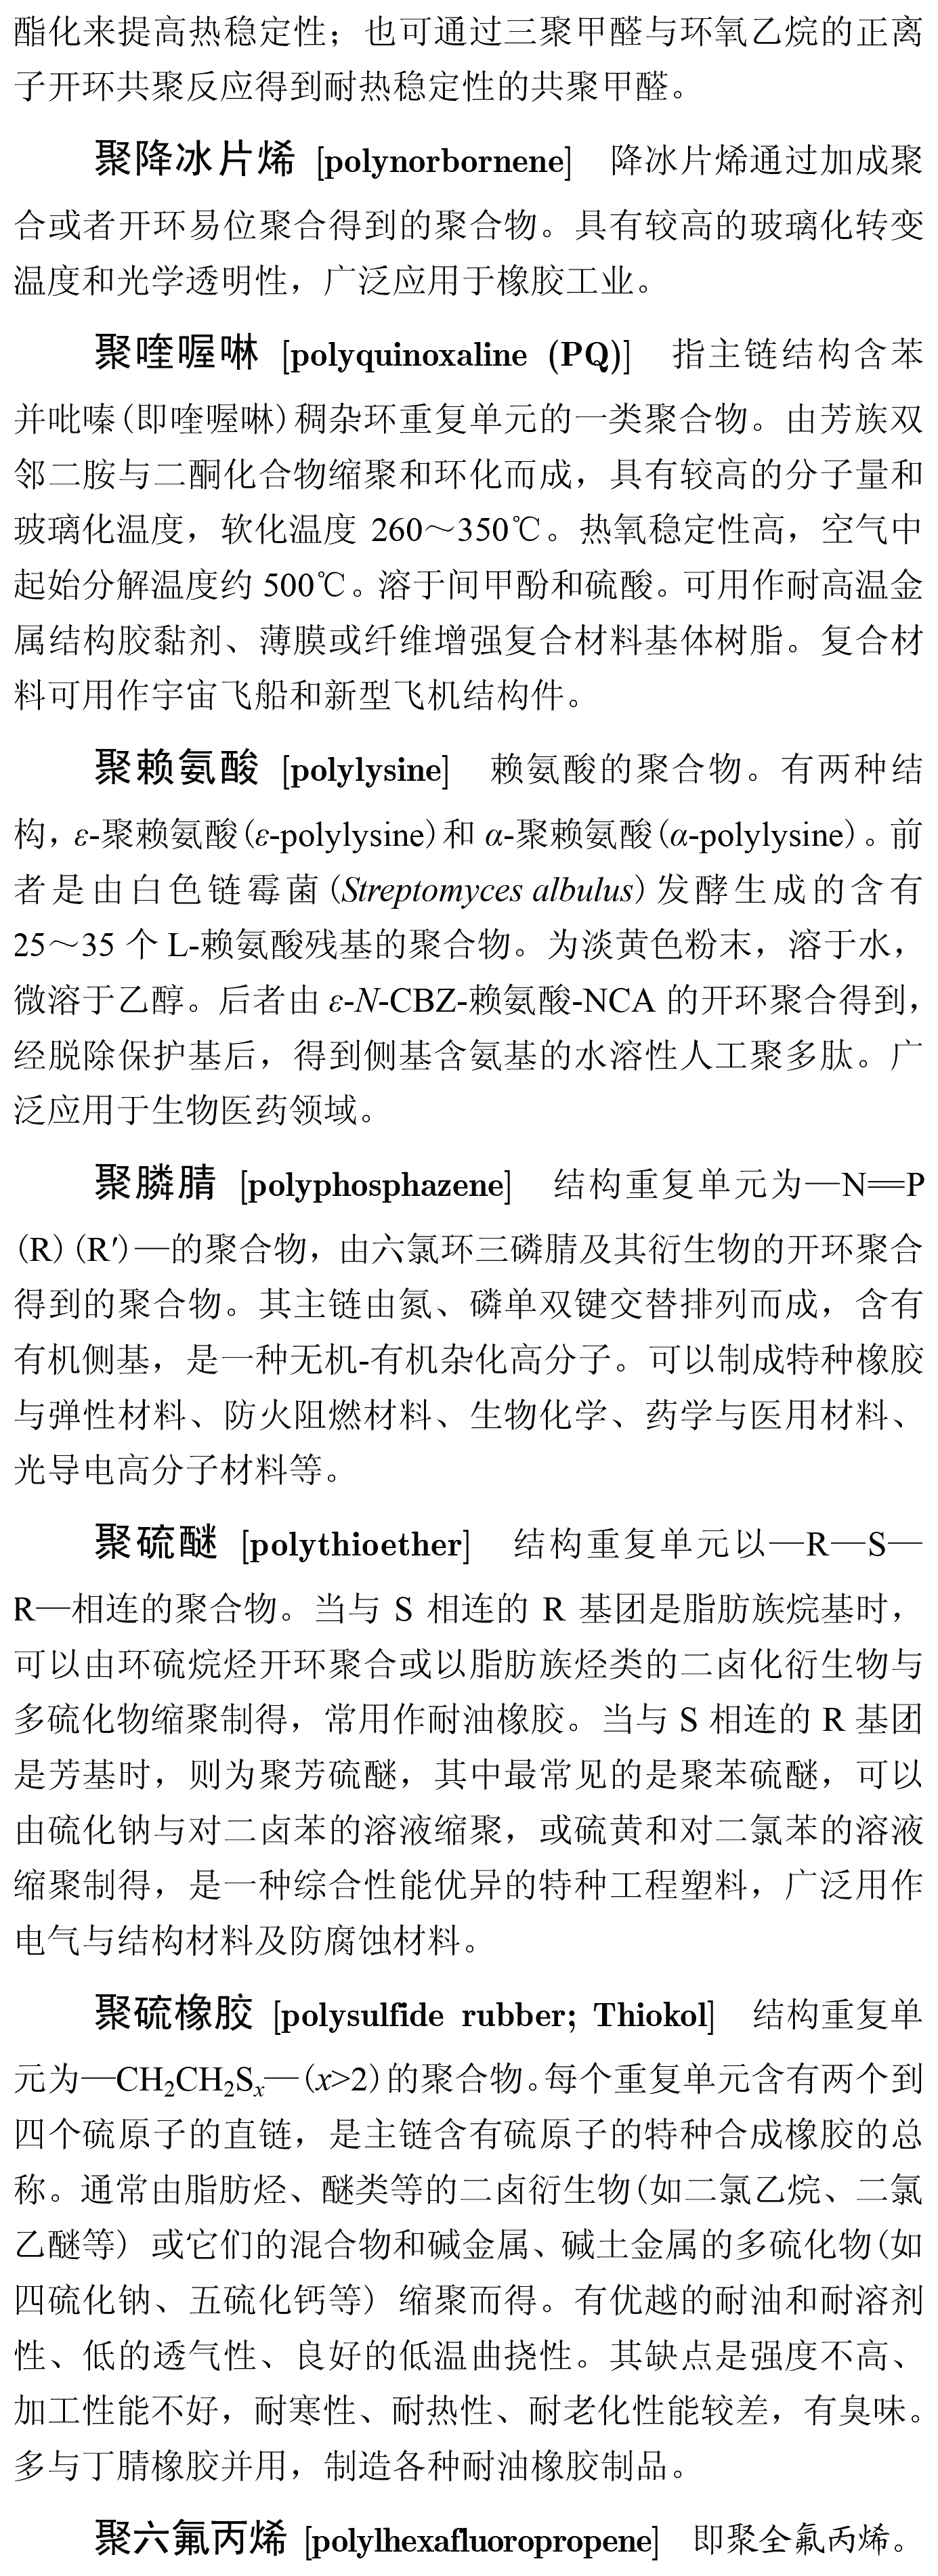 酯化来提高热稳定性；也可通过三聚甲醛与环氧乙烷的正离
子开环共聚反应得到耐热稳定性的共聚甲醛。
聚降冰片烯 [polynorbornene] 降冰片烯通过加成聚
合或者开环易位聚合得到的聚合物。具有较高的玻璃化转变
温度和光学透明性，广泛应用于橡胶工业。
聚喹喔啉 [polyquinoxaline (PQ)] 指主链结构含苯
并吡嗪(即喹喔啉)稠杂环重复单元的一类聚合物。由芳族双
邻二胺与二酮化合物缩聚和环化而成，具有较高的分子量和
玻璃化温度，软化温度 260～350℃。热氧稳定性高，空气中
起始分解温度约 500℃。溶于间甲酚和硫酸。可用作耐高温金
属结构胶黏剂、薄膜或纤维增强复合材料基体树脂。复合材
料可用作宇宙飞船和新型飞机结构件。
聚赖氨酸 [polylysine] 赖氨酸的聚合物。有两种结
构，ε-聚赖氨酸(ε-polylysine)和 α-聚赖氨酸(α-polylysine)。前
者是由白色链霉菌(Streptomyces albulus)发酵生成的含有
25～35 个 L-赖氨酸残基的聚合物。为淡黄色粉末，溶于水，
微溶于乙醇。后者由 ε-N-CBZ-赖氨酸-NCA 的开环聚合得到，
经脱除保护基后，得到侧基含氨基的水溶性人工聚多肽。广
泛应用于生物医药领域。
聚膦腈 [polyphosphazene] 结构重复单元为—N═P
(R)(R′)—的聚合物，由六氯环三磷腈及其衍生物的开环聚合
得到的聚合物。其主链由氮、磷单双键交替排列而成，含有
有机侧基，是一种无机-有机杂化高分子。可以制成特种橡胶
与弹性材料、防火阻燃材料、生物化学、药学与医用材料、
光导电高分子材料等。
聚硫醚 [polythioether] 结构重复单元以—R—S—
R—相连的聚合物。当与 S 相连的 R 基团是脂肪族烷基时，
可以由环硫烷烃开环聚合或以脂肪族烃类的二卤化衍生物与
多硫化物缩聚制得，常用作耐油橡胶。当与 S 相连的 R 基团
是芳基时，则为聚芳硫醚，其中最常见的是聚苯硫醚，可以
由硫化钠与对二卤苯的溶液缩聚，或硫黄和对二氯苯的溶液
缩聚制得，是一种综合性能优异的特种工程塑料，广泛用作
电气与结构材料及防腐蚀材料。
聚硫橡胶 [polysulfide rubber; Thiokol] 结构重复单
元为—CH₂CH₂Sₓ—(x>2)的聚合物。每个重复单元含有两个到
四个硫原子的直链，是主链含有硫原子的特种合成橡胶的总
称。通常由脂肪烃、醚类等的二卤衍生物(如二氯乙烷、二氯
乙醚等) 或它们的混合物和碱金属、碱土金属的多硫化物(如
四硫化钠、五硫化钙等) 缩聚而得。有优越的耐油和耐溶剂
性、低的透气性、良好的低温曲挠性。其缺点是强度不高、
加工性能不好，耐寒性、耐热性、耐老化性能较差，有臭味。
多与丁腈橡胶并用，制造各种耐油橡胶制品。
聚六氟丙烯 [polylhexafluoropropene] 即聚全氟丙烯。